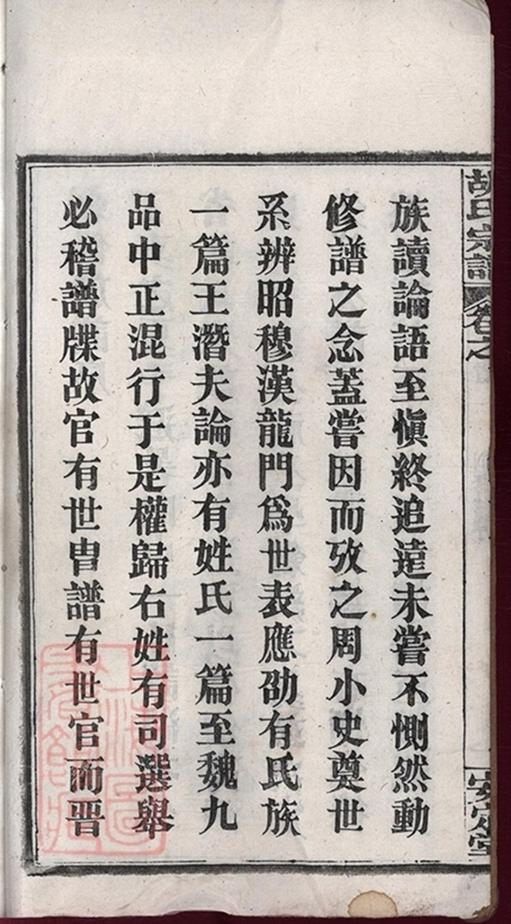 胡氏宗譜 卷之
安定堂
族讀論語至愼終追遠未嘗不惻然動
修譜之念蓋嘗因而攷之周小史奠世
系辨昭穆漢龍門爲世表應劭有氏族
一篇王潛夫論亦有姓氏一篇至魏九
品中正混行于是權歸右姓有司選舉
必稽譜牒故官有世胄譜有世官而晋